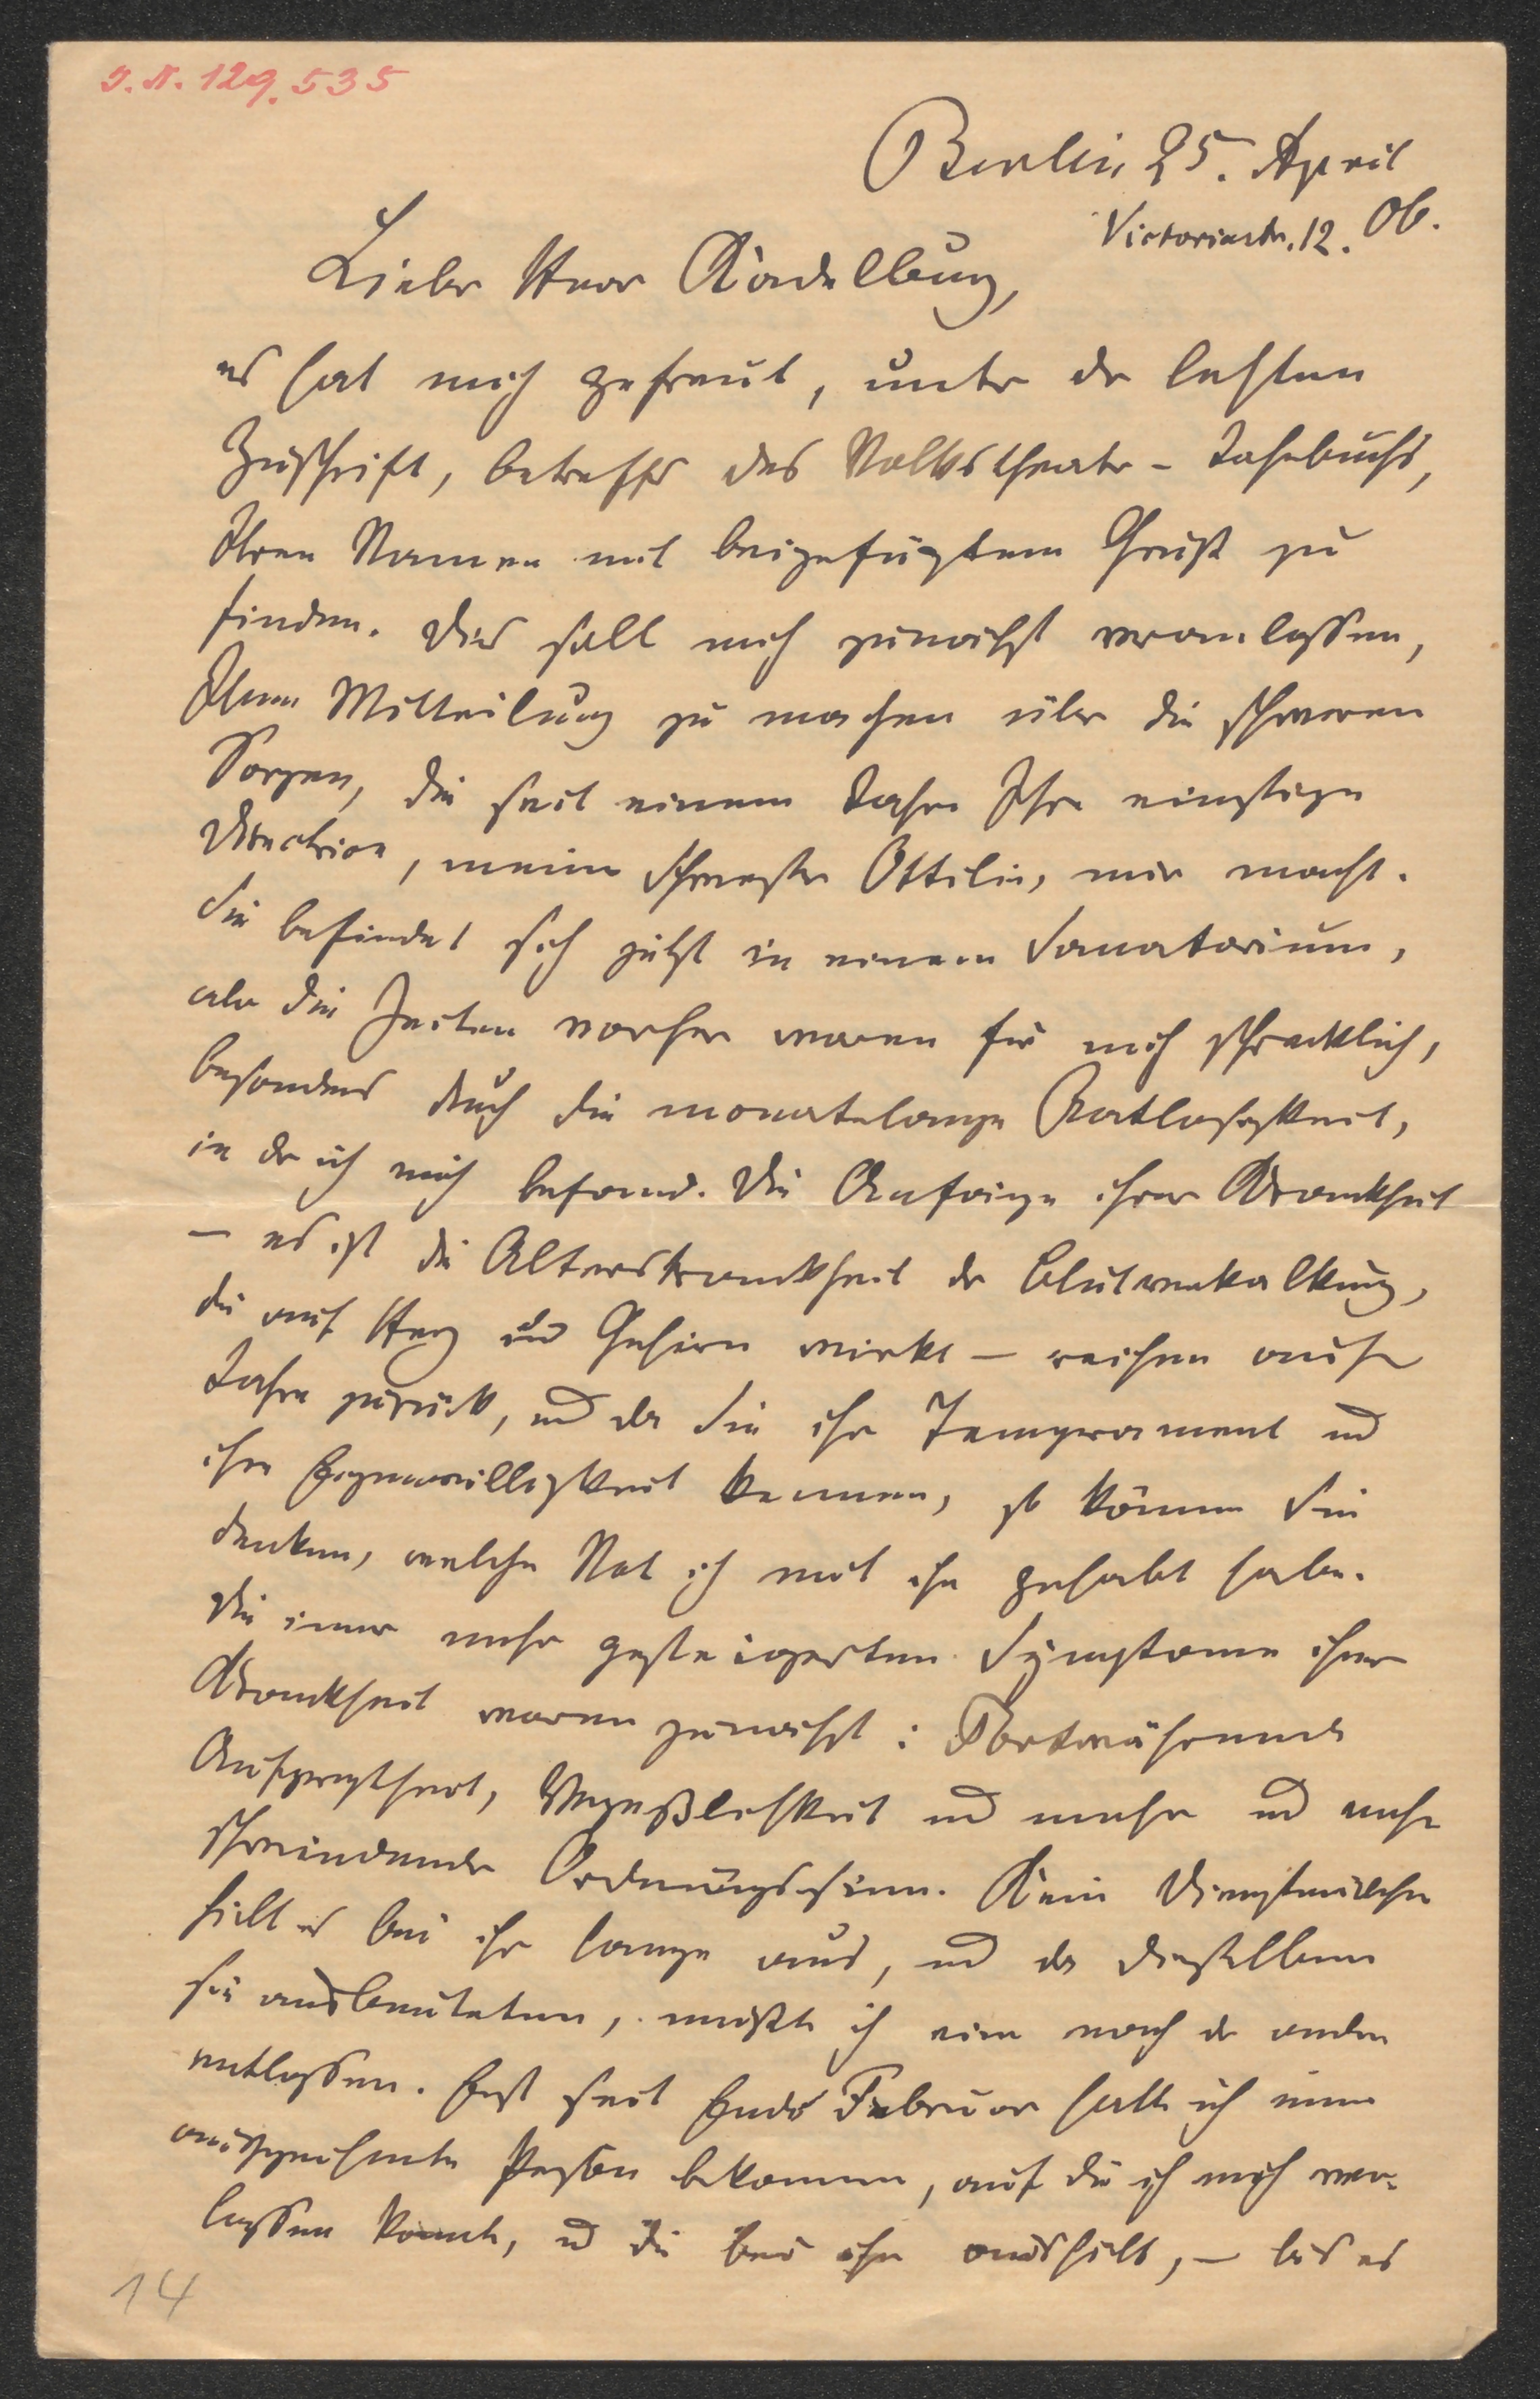 J.N. 129.535
Berlin 25. April
Victoriastr. 12. 06.
Lieber Herr Kadelburg,
es hat mich gefreut, unter der letzten
Zuschrift, betreffs des Volkstheater-Jahrbuchs,
Ihren Namen mit beigefügtem Gruß zu
finden. Dies soll mich zunächst veranlassen,
Ihnen Mitteilung zu machen über die schweren
Sorgen, die seit einem Jahre Ihre einstige
Directrice, meine Schwester Ottilie, mir macht.
Sie befindet sich jetzt in einem Sanatorium,
aber die Zeiten vorher waren für mich schrecklich,
besonders durch die monatelange Ratlosigkeit,
in der ich mich befand. Die Anfänge ihrer Krankheit
– es ist die Alterskrankheit der Blutverkalkung,
die auf Herz und Gehirn wirkt – reichen auf
Jahre zurück, und da Sie ihr Temperament und
ihre Eigenwilligkeit kennen, so können Sie
denken, welche Not ich mit ihr gehabt habe.
Die immer mehr gesteigerten Symptome ihrer
Krankheit waren zunächst: Fortwährende
Aufgeregtheit, Vergeßlichkeit und mehr und mehr
schwindender Ordnungssinn. Kein Dienstmädchen
hielt es bei ihr lange aus, und da dieselben
sie ausbeuteten, mußte ich eine nach der andern
entlassen. Erst seit Ende Februar hatte ich eine
ausgezeichnete Person bekommen, auf die ich mich ver-
lassen konnte, und die bei ihr aushielt, – bis es
14